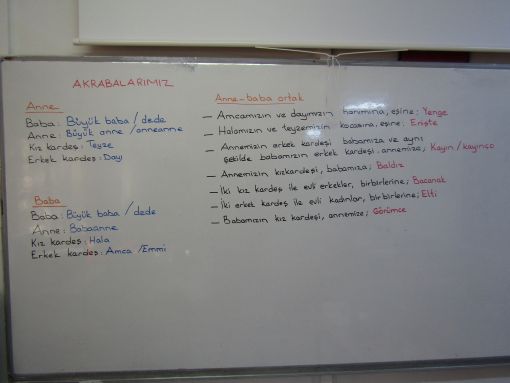 AKRABALARIMIZ
Anne
Baba: Büyük baba / dede
Anne: Büyük anne / anneanne
Kız kardeş: Teyze
Erkek kardeş: Dayı
Baba
Baba: Büyük baba / dede
Anne: Babaanne
Kız kardeş: Hala
Erkek kardeş: Amca / Emmi
Anne-baba ortak
– Amcamızın ve dayımızın hanımına, eşine; Yenge
– Halamızın ve teyzemizin kocasına, eşine; Enişte
– Annemizin erkek kardeşi babamıza ve aynı
şekilde babamızın erkek kardeşi annemize; Kayın / kayınço
– Annemizin kızkardeşi, babamıza; Baldız
– İki kız kardeş ile evli erkekler, birbirlerine; Bacanak
– İki erkek kardeş ile evli kadınlar, birbirlerine; Elti
– Babamızın kız kardeşi, annemize; Görümce